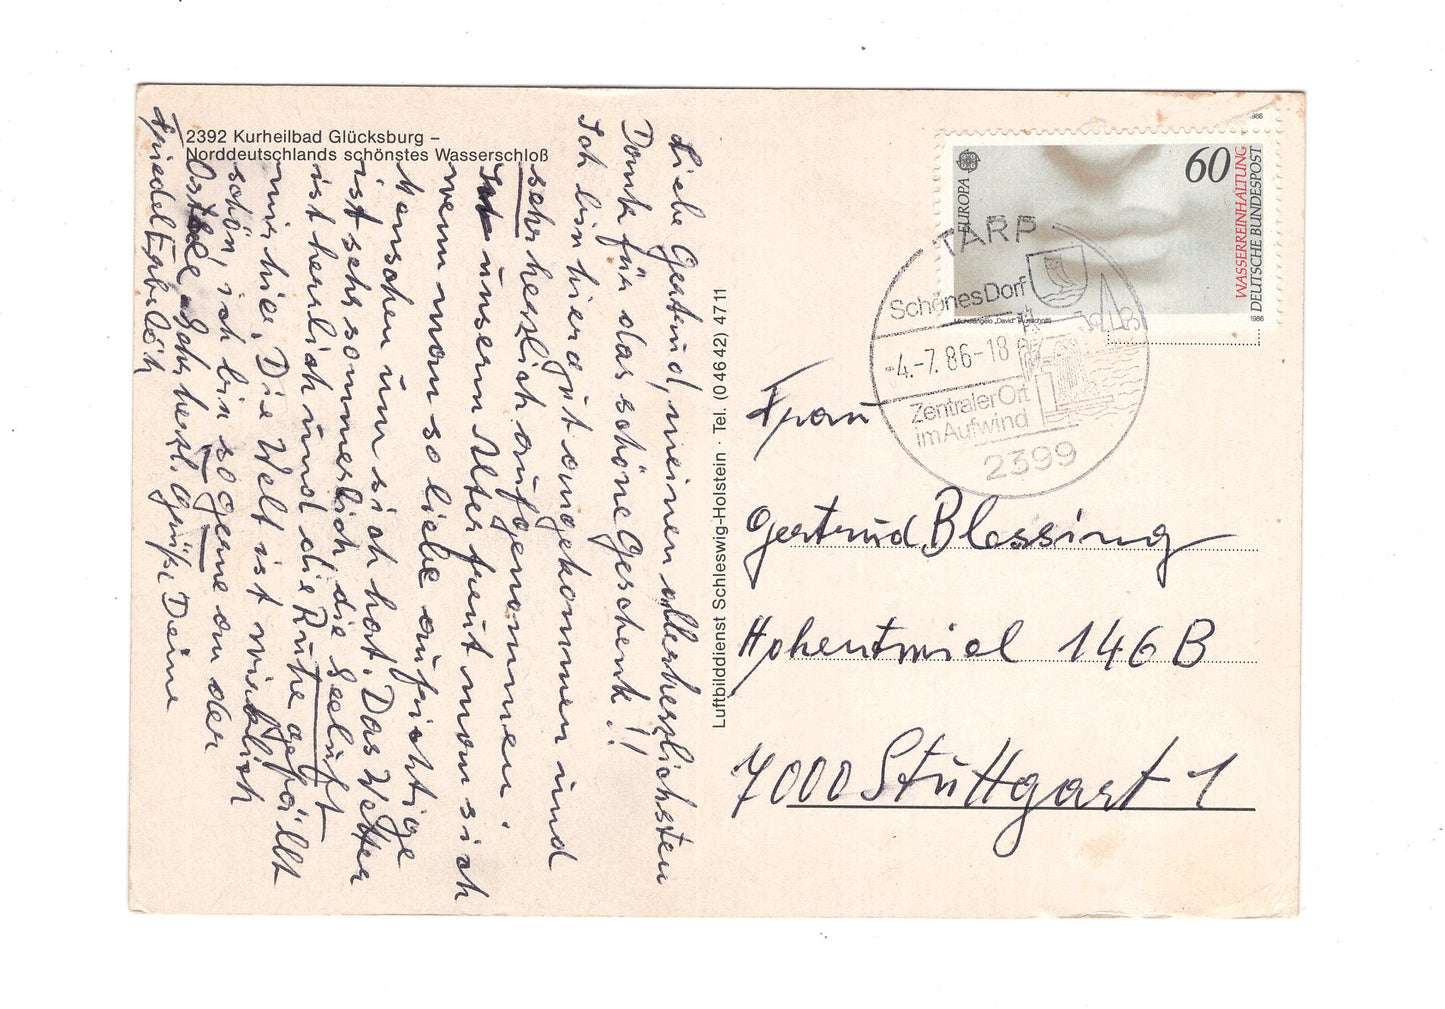 2392 Kurheilbad Glücksburg –
Norddeutschlands schönstes Wasserschloß
Liebe Gertrud, meinen allerherzlichsten
Dank für das schöne Geschenk!!
Ich bin hier gut angekommen und
sehr herzlich aufgenommen.
In unserm Alter freut man sich
wenn man so liebe aufrichtige
Menschen um sich hat. Das Wetter
ist sehr sommerlich die Seeluft
ist herrlich und die Ruhe gefällt
mir hier. Die Welt ist wirklich
schön, ich bin so gerne an der
Ostsee. Sehr herzl. Grüße Deine
Friedel
Luftbilddienst Schleswig-Holstein · Tel. (04642) 4711
EUROPA
60
WASSERREINHALTUNG
DEUTSCHE BUNDESPOST
Michelangelo „David" (Ausschnitt)
1986
1986
TARP
Schönes Dorf
-4.-7.86-18
Zentraler Ort
im Aufwind
2399
Frau
Gertrud Blessing
Hohentwiel 146 B
7000 Stuttgart 1